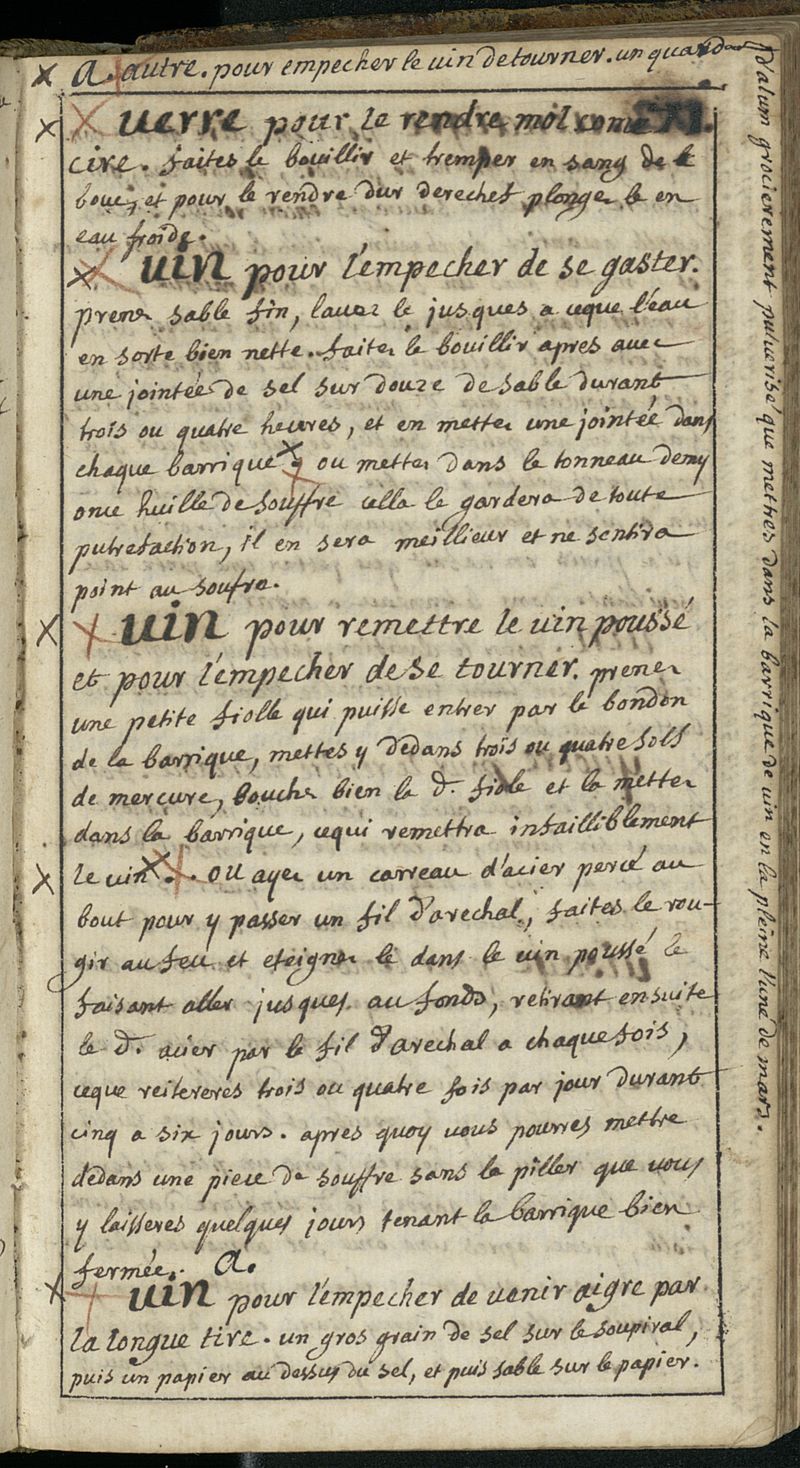 a. autre. pour empecher le vin de tourner. un quard
d'alum grocierement pulverisé que mettres dans la barrique de vin en la pleine lune de mars.
uerre pour le rendre mol come
cire. faites le bouillir et tremper en sang de
bouc, et pour le rendre dur derechef plonges le en
eau froide.
uin pour l'empecher de se gaster.
prenes sable fin, laues le jusques a ceque l'eau
en sorte bien nette. faites le bouillir apres auec
une jointée de sel sur douze de sable durant
trois ou quatre heures, et en mettes une jointée dans
chaque barrique ou mettes dans le tonneau demy
once huille de souffre cella le gardera de toute
putrefaction, il en sera meillieur et ne sentira
point au soufre.
uin pour remettre le uin poussé
et pour l'empecher de se tourner. prenes
une petite fiolle qui puisse entrer par le bondon
de la barrique, mettes y dedans trois ou quatre sols
de mercure, bouches bien la d. fiole et la mettes
dans la barrique, cequi remettra infailliblement
le uin. ou ayes un carreau d'acier percé au
bout pour y passer un fil d'arechal, faites le rou-
gir au feu et eteignes le dans le uin poussé le
faisant aller jusques au fonds, retirant ensuite
le d. acier par le fil d'arechal a chaque fois,
ceque reitereres trois ou quatre fois par jour durant
cinq a six jours. apres quoy uous pourres mettre
dedans une piece de souffre sans la piller que uous
y laisseres quelques jours tenant la barrique bien
fermée. a.
uin pour l'empecher de uenir aigre par
la longue tire. un gros grain de sel sur le soupiral,
puis un papier au dessus du sel, et puis sable sur le papier.